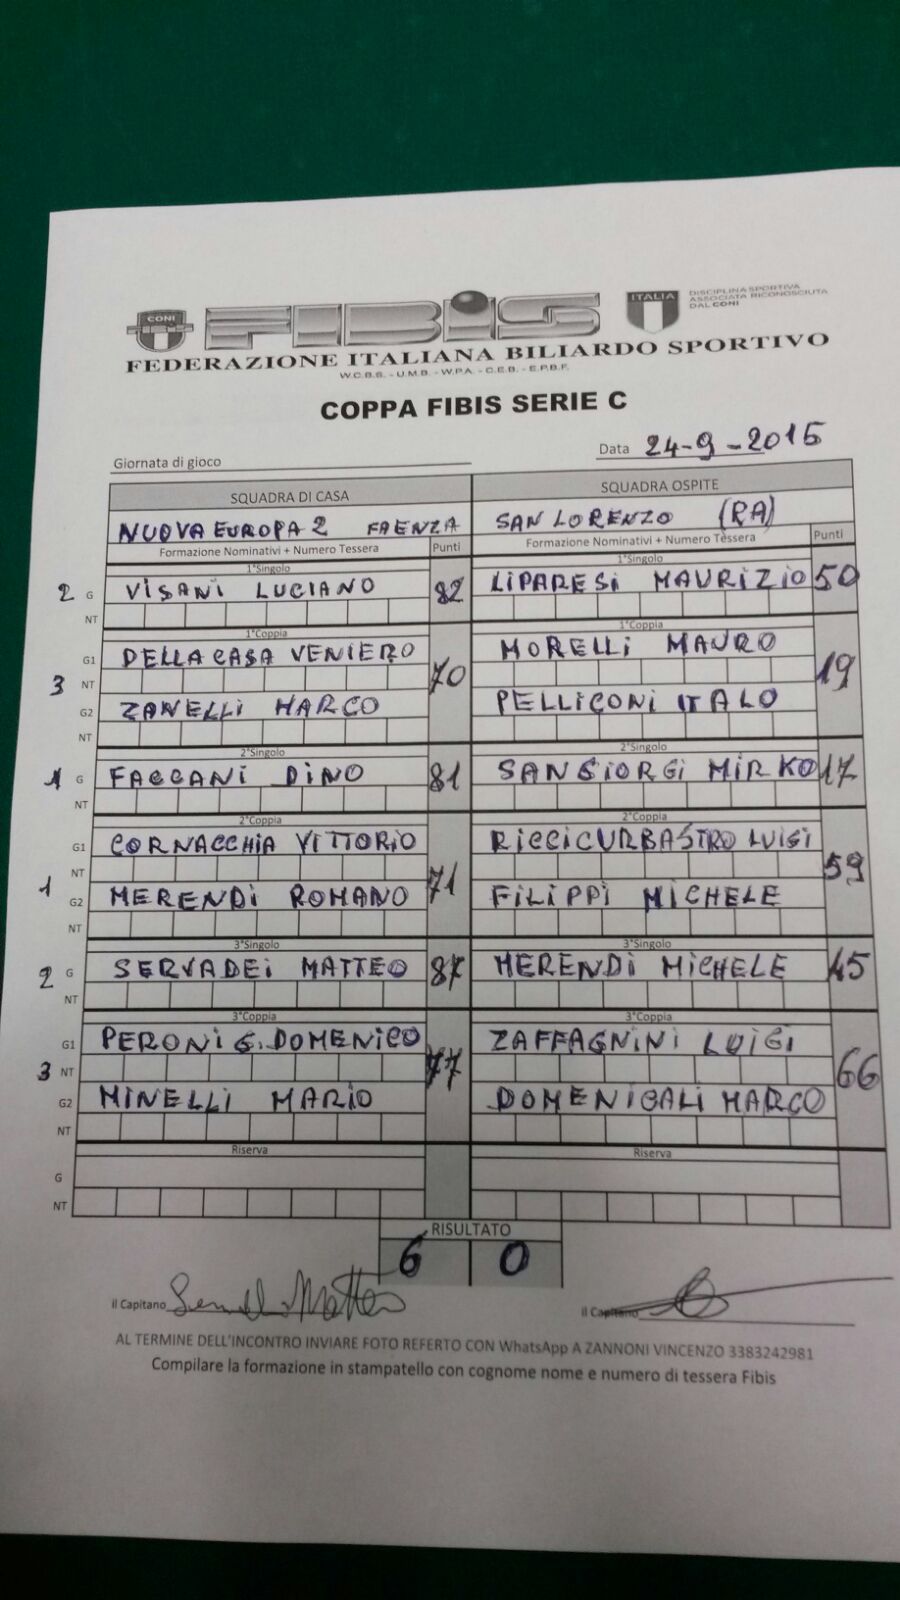 CONI
FIBIS
ITALIA
DISCIPLINA SPORTIVA
ASSOCIATA RICONOSCIUTA
DAL CONI
FEDERAZIONE ITALIANA BILIARDO SPORTIVO
W.C.B.S. - U.M.B. - W.P.A. - C.E.B. - E.P.B.F.
COPPA FIBIS SERIE C
Giornata di gioco Data 24-9-2015
SQUADRA DI CASA SQUADRA OSPITE
NUOVA EUROPA 2 FAENZA SAN LORENZO (RA)
Formazione Nominativi + Numero Tessera Punti Formazione Nominativi + Numero Tessera Punti
1°Singolo 1°Singolo
2 G VISANI LUCIANO 82 LIPARESI MAURIZIO 50
NT
1°Coppia 1°Coppia
G1 DELLA CASA VENIERO MORELLI MAURO
3 NT 70 19
G2 ZANELLI MARCO PELLICONI ITALO
NT
2°Singolo 2°Singolo
1 G FACCANI DINO 81 SANGIORGI MIRKO 17
NT
2°Coppia 2°Coppia
G1 CORNACCHIA VITTORIO RICCICURBASTRO LUIGI
NT 71 59
1 G2 MERENDI ROMANO FILIPPI MICHELE
NT
3°Singolo 3°Singolo
2 G SERVADEI MATTEO 87 MERENDI MICHELE 45
NT
3°Coppia 3°Coppia
G1 PERONI G. DOMENICO ZAFFAGNINI LUIGI
3 NT 77 66
G2 MINELLI MARIO DOMENICALI MARCO
NT
Riserva Riserva
G
NT
RISULTATO
6 0
il Capitano Matteo il Capitano
AL TERMINE DELL'INCONTRO INVIARE FOTO REFERTO CON WhatsApp A ZANNONI VINCENZO 3383242981
Compilare la formazione in stampatello con cognome nome e numero di tessera Fibis